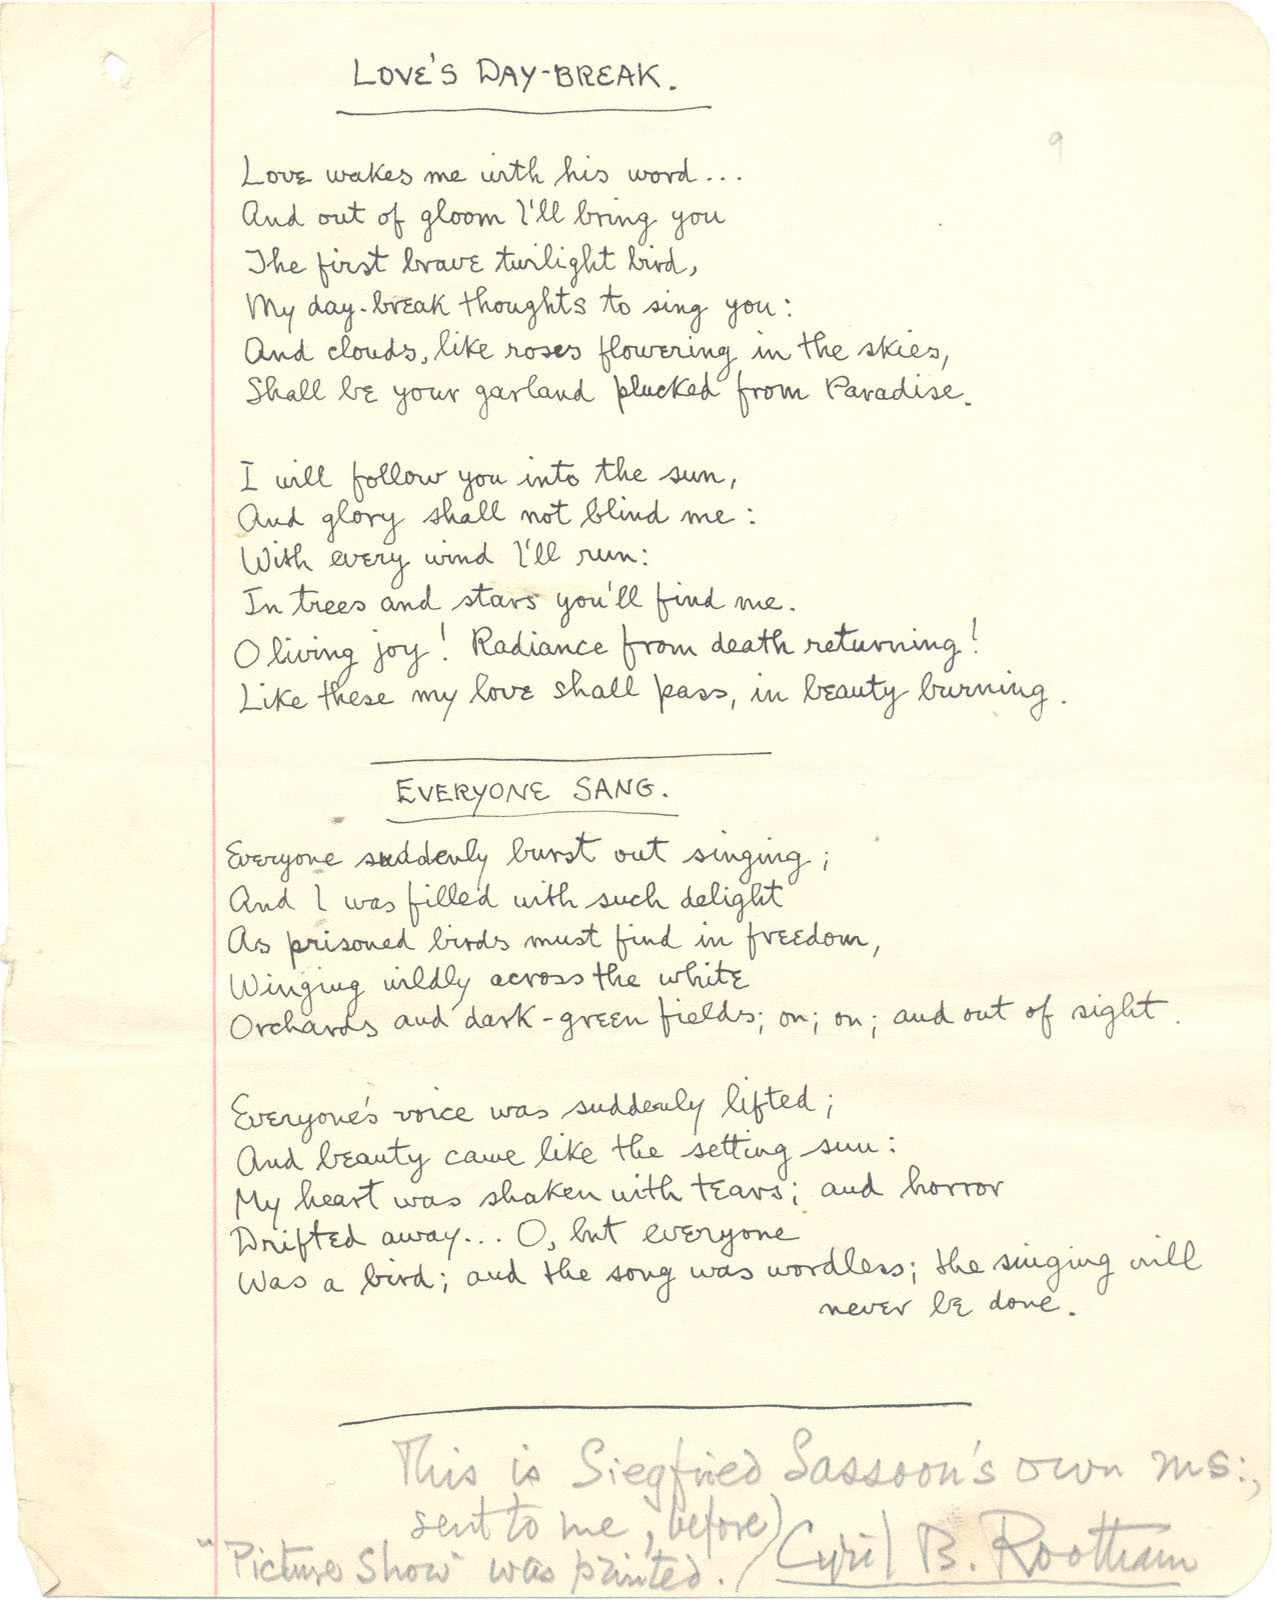 LOVE'S DAY-BREAK.
9
Love wakes me with his word...
And out of gloom I'll bring you
The first brave twilight bird,
My day-break thoughts to sing you:
And clouds, like roses flowering in the skies,
Shall be your garland plucked from Paradise.
I will follow you into the sun,
And glory shall not blind me:
With every wind I'll run:
In trees and stars you'll find me.
O living joy! Radiance from death returning!
Like these my love shall pass, in beauty burning.
EVERYONE SANG.
Everyone suddenly burst out singing;
And I was filled with such delight
As prisoned birds must find in freedom,
Winging wildly across the white
Orchards and dark-green fields; on; on; and out of sight.
Everyone's voice was suddenly lifted;
And beauty came like the setting sun:
My heart was shaken with tears; and horror
Drifted away... O, but everyone
Was a bird; and the song was wordless; the singing will
never be done.
This is Siegfried Sassoon's own MS:,
sent to me, before
"Picture Show" was printed. / Cyril B. Rootham